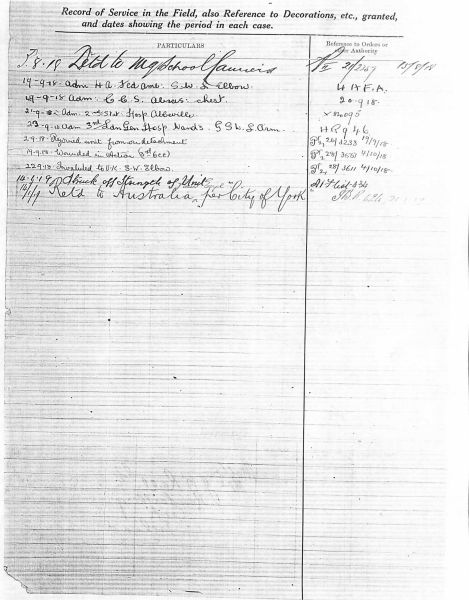 Record of Service in the Field, also Reference to Decorations, etc., granted,
and dates showing the period in each case.
PARTICULARS
Reference to Orders or other Authority
7.8.18 Detd to M.G. School Camiers 21/2249 13/8/18
19-9-18 Adm. H.A. Fed Amb. S.W. L Elbow HAFA
19-9-18 Adm: C.C.S. chest. 20.9.18
21-9-18 Adm. 2nd Stat. Hosp Abbeville
23-9-18 Adm 3rd Lon Gen Hosp Wands. G.S.W. L Arm. H
2.9.18 Rejoined unit from detachment 26/4233 19/9/18
19.9.18 Wounded in Action 28/3651 4/10/18
22.9.18 Invalided to U.K. S.W. Elbow 28/3611 4/10/18
Struck off Strength of Unit A1 List 434
Retd to Australia, per City of York